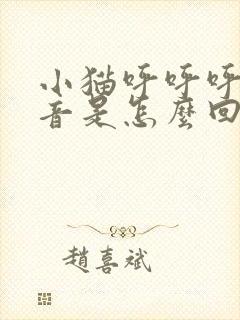 小猫呼呼呼
音是怎麼回
趙喜斌